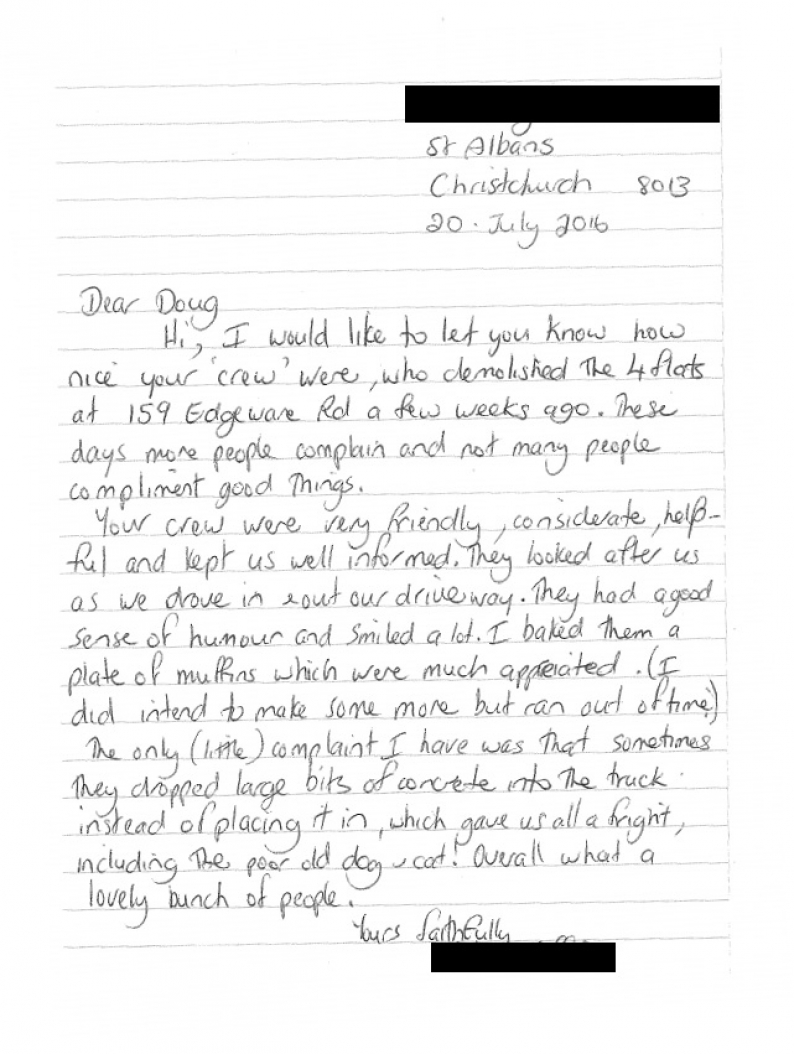 St Albans
Christchurch 8013
20. July 2016
Dear Doug
Hi, I would like to let you know how
nice your 'crew' were, who demolished the 4 flats
at 159 Edgeware Rd a few weeks ago. These
days more people complain and not many people
compliment good things.
Your crew were very friendly, considerate, help-
ful and kept us well informed. They looked after us
as we drove in & out our driveway. They had a good
sense of humour and smiled a lot. I baked them a
plate of muffins which were much appreciated. (I
did intend to make some more but ran out of time!)
The only (little) complaint I have was that sometimes
they dropped large bits of concrete into the truck
instead of placing it in, which gave us all a fright,
including the poor old dog & cat! Overall what a
lovely bunch of people.
Yours faithfully